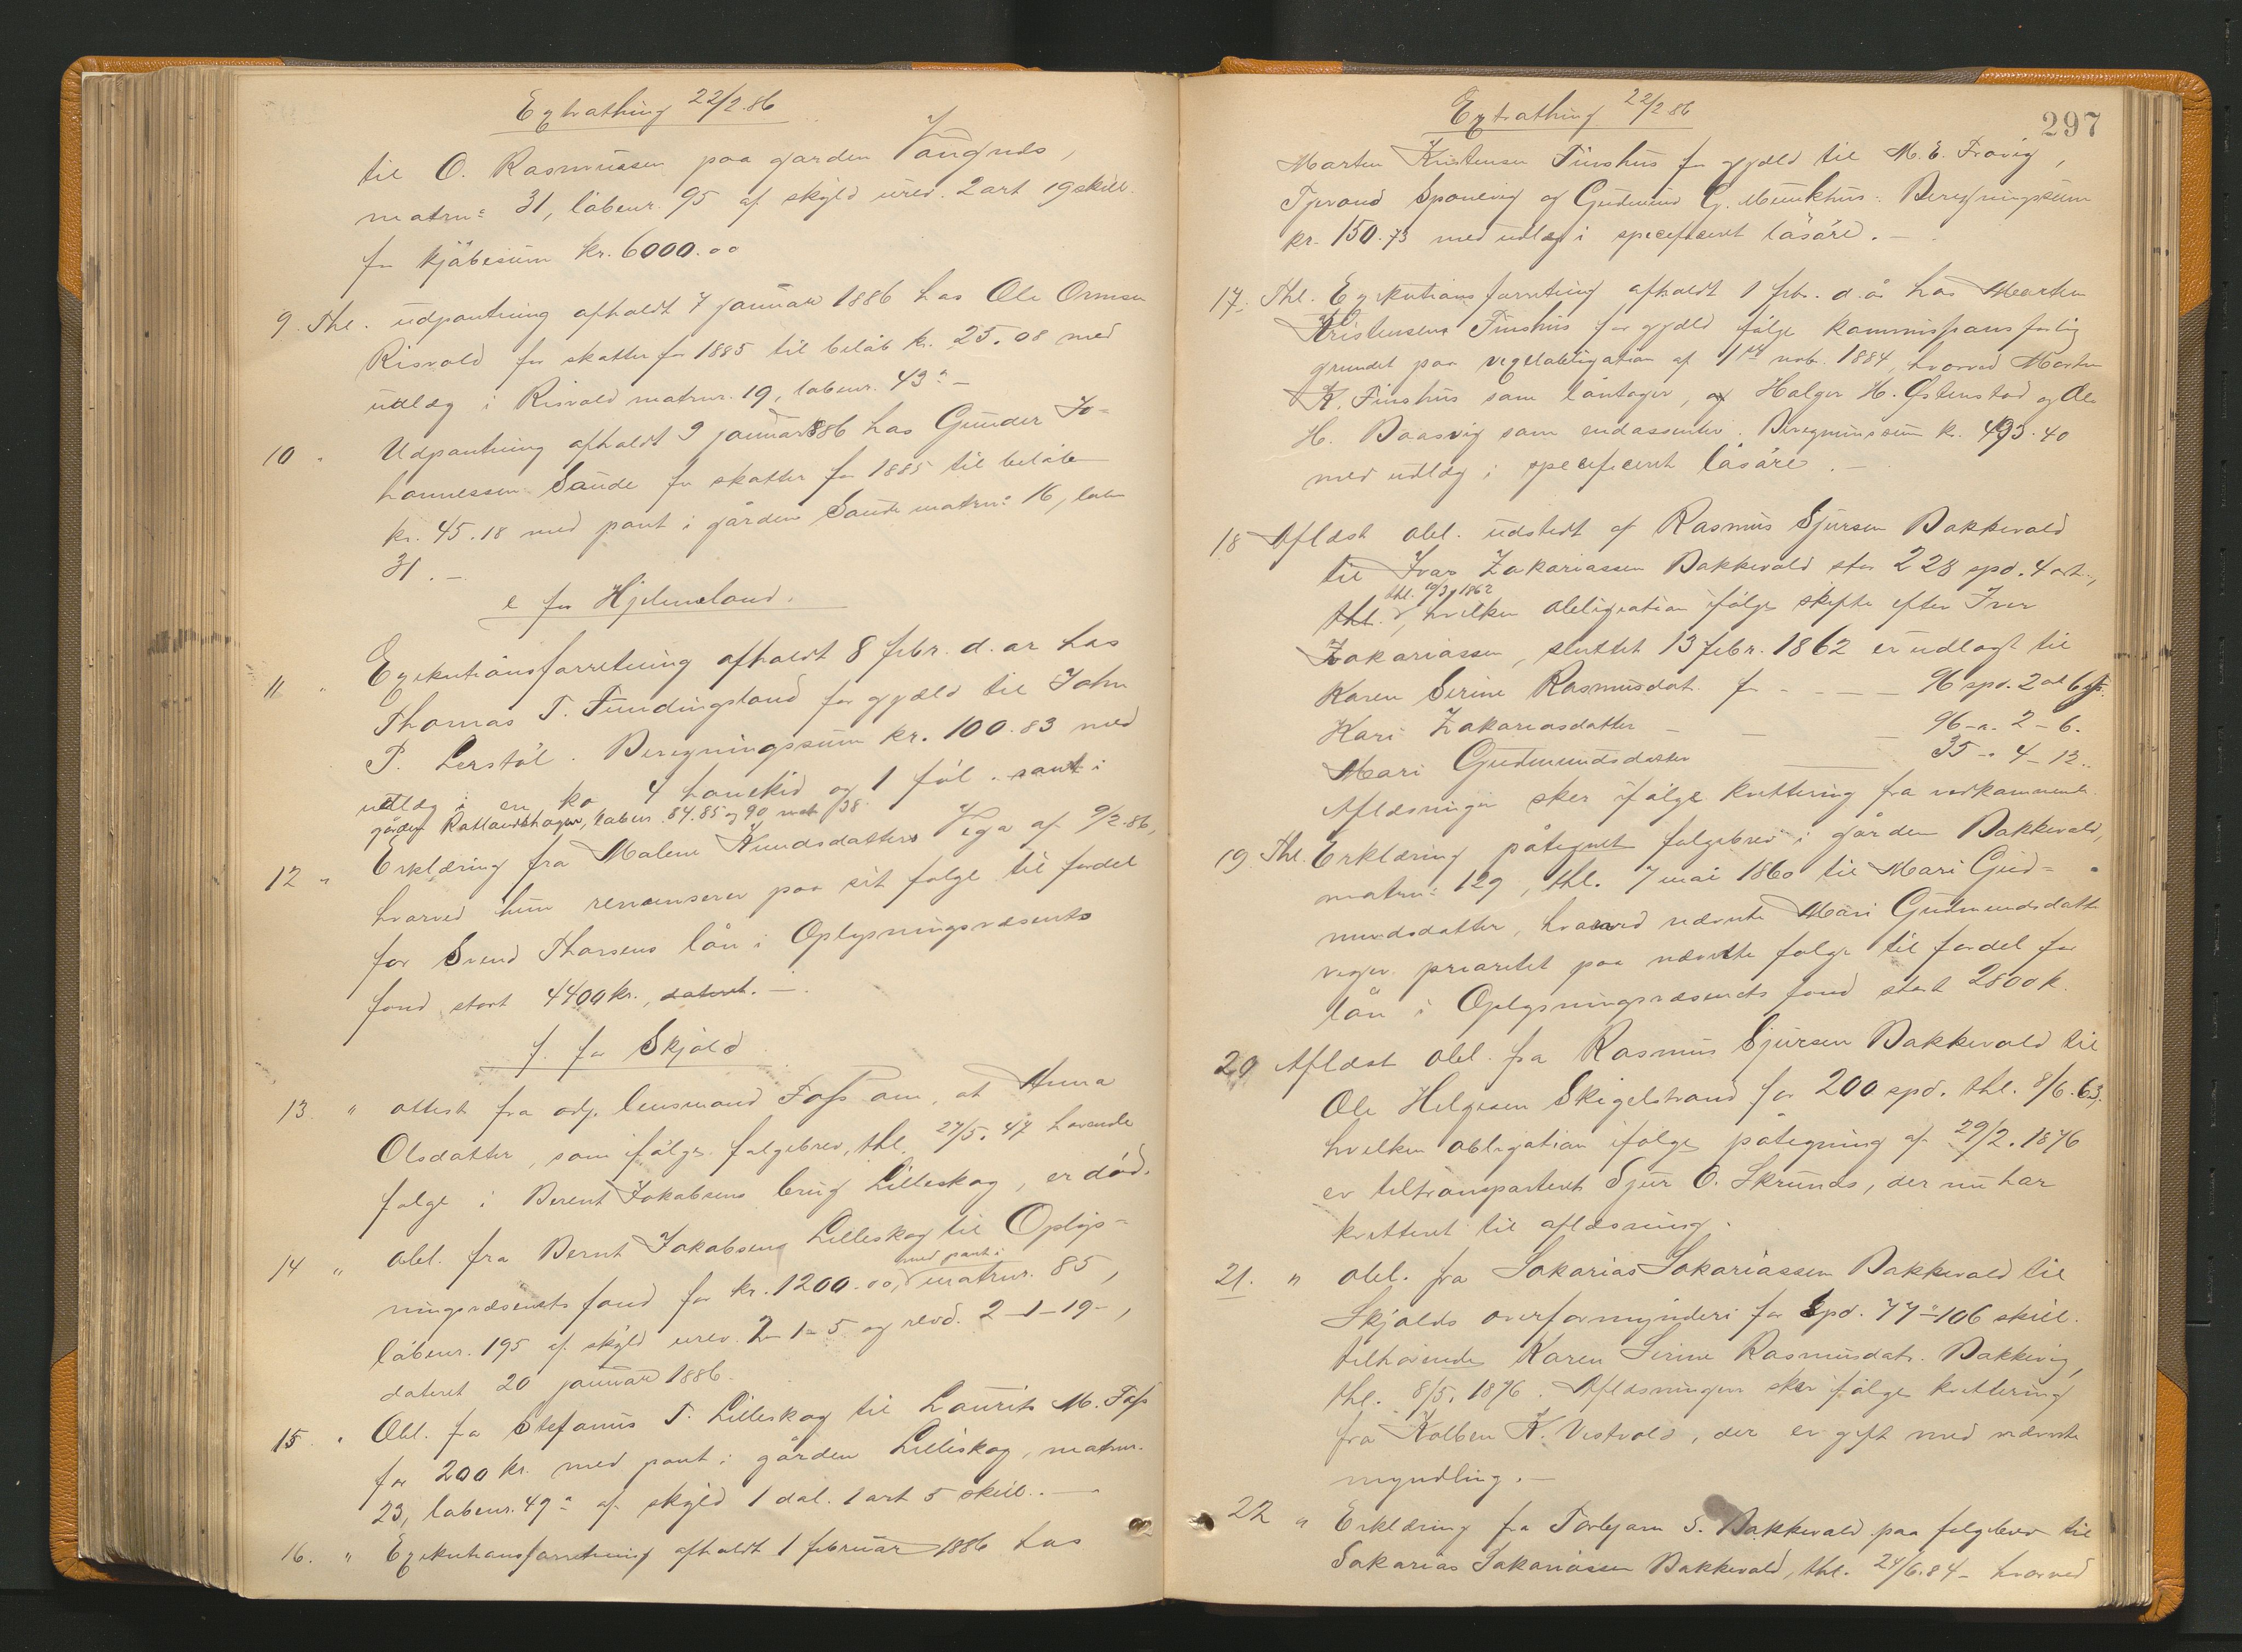 Extrathing 22/2.86
til O. Rasmussen paa gaarden Vaagnæs,
matrn: 31, löbenr. 95 af skyld urev. 2 ort 19 skill.
for kjöbesum kr. 6000.00
9. Thl. udpantning afholdt 7 januar 1886 hos Ole Ormsen
Risvold for skatter for 1885 til beløb kr. 25.08 med
udlæg i Risvold matrnr. 19, løbenr. 43a –
10 " Udpantning afholdt 9 januar 1886 hos Gunder Jo-
hannessen Sande for skatter for 1885 til beløb
kr. 45.18 med pant i gården Sande matrn: 16, løbe
31. –
e for Hjelmeland.
11 " Exekutionsforretning afholdt 8 febr. d. år hos
Thomas T. Fundingsland for gjæld til John
P. Lerstöl. Beregningssum kr. 100.83 med
udlæg i en ko 4 honekid og 1 föl. samt i
gården Ratlandshagen, løbenr. 84.85 og 90 matr 38.
12 " Erklæring fra Malene Knudsdatter Vega af 9/2.86,
hvorved hun renonserer paa sit folge til fordel
for Svend Thorsens lån i Oplysningsvæsents
fond stort 4400 kr., dateret. –
f. for Skjold
13 " attest fra adj. lensmand Foss om, at Anna
Olsdatter, som ifølge folgebrev, thl. 27/5.47 havende
folge i Berent Jakobsens brug Lilleskog, er död.
14 " obl. fra Bernt Jakobsen Lilleskog til Oplys-
ningsvæsenets fond for kr. 1200.00, med pant i matrnr. 85,
löbenr. 195 af skyld urev. 2-1-5 og revd. 2-1-19-,
dateret 20 januar 1886.
15 " Obl. fra Stefanus T. Lilleskog til Laurits M. Foss
for 200 kr. med pant i gården Lilleskog, matrnr.
23, løbenr. 49a af skyld 1 dal. 1 ort 5 skill. –
16. " Exekutionsforretning afholdt 1 februar 1886 hos
Extrathing 22/2 86
297
Morten Kristensen Finshus for gjæld til M. E. Frøvig,
Tjerand Sponevig og Gudmund G. Munkhus. Beregningssum
kr. 150.73 med udlæg i specificeret lösöre. –
17. Thl. Exekutionsforretning afholdt 1 febr. d. år hos Morten
Kristensens Finshus for gjæld ifølge kommissionsforlig
grundet paa vexelobligation af 1ste novb. 1884, hvorved Morten
K. Finshus som låntager, og Holger H. Østenstad og Ole
H. Baasvig som endossenter. Beregningssum kr. 493.40
med udlæg i specificeret lösöre. –
18 Aflæst obl. udstedt af Rasmus Sjursen Bakkevold
til Ivar Zakariassen Bakkevold stor 228 spd. 4 ort,
thl. 10/3 1862
thl. , hvilken obligation ifølge skifte efter Iver
Zakariassen, sluttet 13 febr. 1862 er udlagt til
Karen Serine Rasmusdat. for - - — 96 spd. 2 ort 6 sk.
Kari Zakariasdatter - — — 96 - " 2 - 6.
Mari Gudmundsdatter — 35 - " 4 - 12.
Aflæsningen sker ifølge kvittering fra vedkommende.
19 Thl. Erklæring påtegnet folgebrev i gården Bakkevold,
matrn: 129, thl. 7 mai 1860 til Mari Gud=
mundsdatter, hvorved nævnte Mari Gudmundsdatter
viger prioritet paa nævnte folge til fordel for
lån i Oplysningsvæsenets fond stort 2800 k.
20 Aflæst obl. fra Rasmus Sjursen Bakkevold til
Ole Helgesen Skigelstrand for 200 spd. thl. 8/6.63,
hvilken obligation ifølge påtegning af 29/2.1876
er tiltransporteret Sjur O. Skrunds, der nu har
kvitteret til aflæsning.
21. " obl. fra Sakarias Sakariassen Bakkevold til
Skjolds overformynderi for Spd. 77-"-106 skill.
tilhørende Karen Serine Rasmusdatr. Bakkevig,
thl. 8/5.1876. Aflæsningen sker ifølge kvittering
fra Kolben K. Vestvold, der er gift med nævnte
myndling. –
22 " Erklæring fra Torbjørn S. Bakkevold paa folgebrev til
Sakarias Sakariassen Bakkevold, thl. 24/6.84 – hvorved